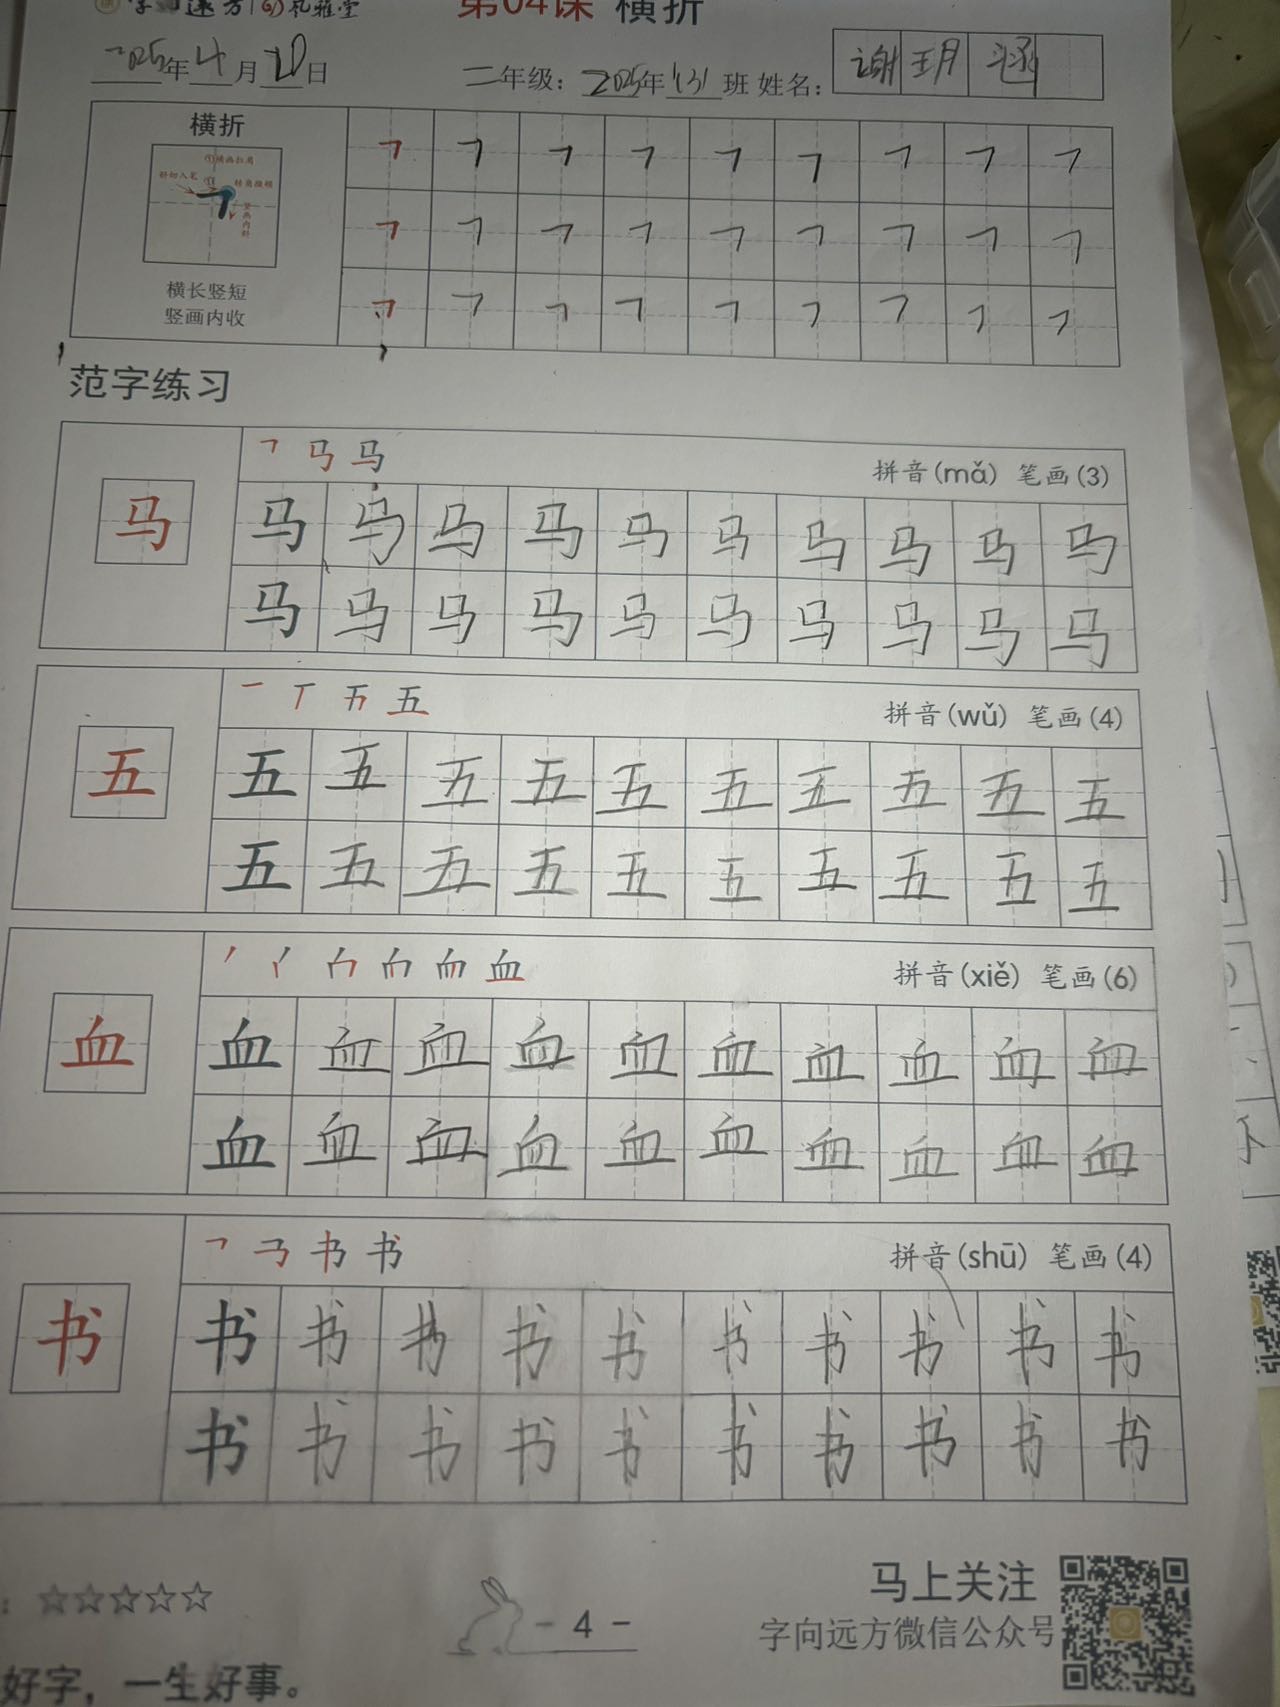 第04课 横折
2025年4月20日 二年级：2025年(3)班 姓名：谢玥涵
横折
①横画扛肩
斜切入笔 ① 转角微顿
竖画内斜
横长竖短
竖画内收
范字练习
马 拼音(mǎ) 笔画(3)
马 马 马 马 马 马 马 马 马 马 马
马 马 马 马 马 马 马 马 马 马
五 拼音(wǔ) 笔画(4)
五 五 五 五 五 五 五 五 五 五 五
五 五 五 五 五 五 五 五 五 五
血 拼音(xiě) 笔画(6)
血 血 血 血 血 血 血 血 血 血 血
血 血 血 血 血 血 血 血 血 血
书 拼音(shū) 笔画(4)
书 书 书 书 书 书 书 书 书 书 书
书 书 书 书 书 书 书 书 书 书
马上关注
- 4 -
字向远方微信公众号
好字，一生好事。